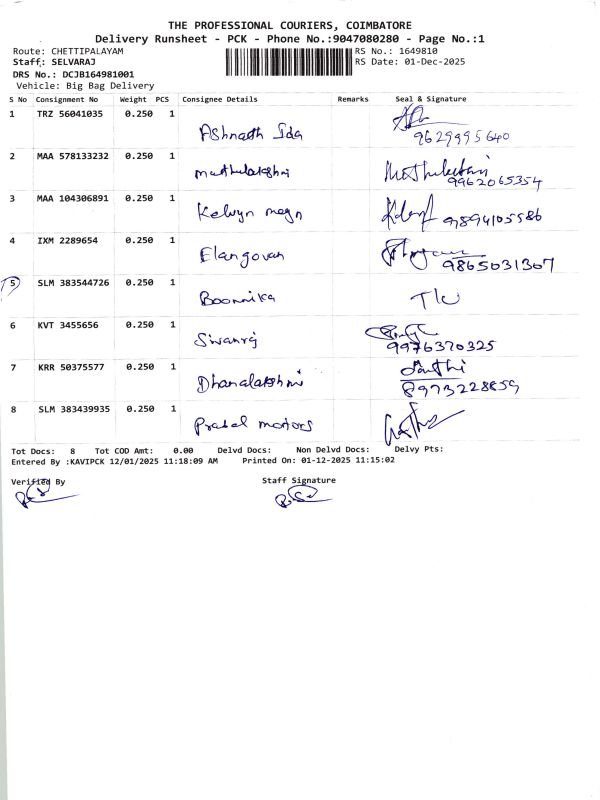 THE PROFESSIONAL COURIERS, COIMBATORE
Delivery Runsheet - PCK - Phone No.:9047080280 - Page No.:1
Route: CHETTIPALAYAM
RS No.: 1649810
Staff: SELVARAJ
RS Date: 01-Dec-2025
DRS No.: DCJB164981001
Vehicle: Big Bag Delivery
S No Consignment No Weight PCS Consignee Details Remarks Seal & Signature
1 TRZ 56041035 0.250 1
9629995640
2 MAA 578133232 0.250 1 muthulakshmi
9962065354
3 MAA 104306891 0.250 1 Kelvyn
9894105586
4 IXM 2289654 0.250 1 Elangovan
9865031307
5 SLM 383544726 0.250 1 Boomika
6 KVT 3455656 0.250 1 Sivanraj
9976370325
7 KRR 50375577 0.250 1 Dhanalakshmi
8973228859
8 SLM 383439935 0.250 1 motors
Tot Docs: 8 Tot COD Amt: 0.00 Delvd Docs: Non Delvd Docs: Delvy Pts:
Entered By :KAVIPCK 12/01/2025 11:18:09 AM Printed On: 01-12-2025 11:15:02
Verified By Staff Signature